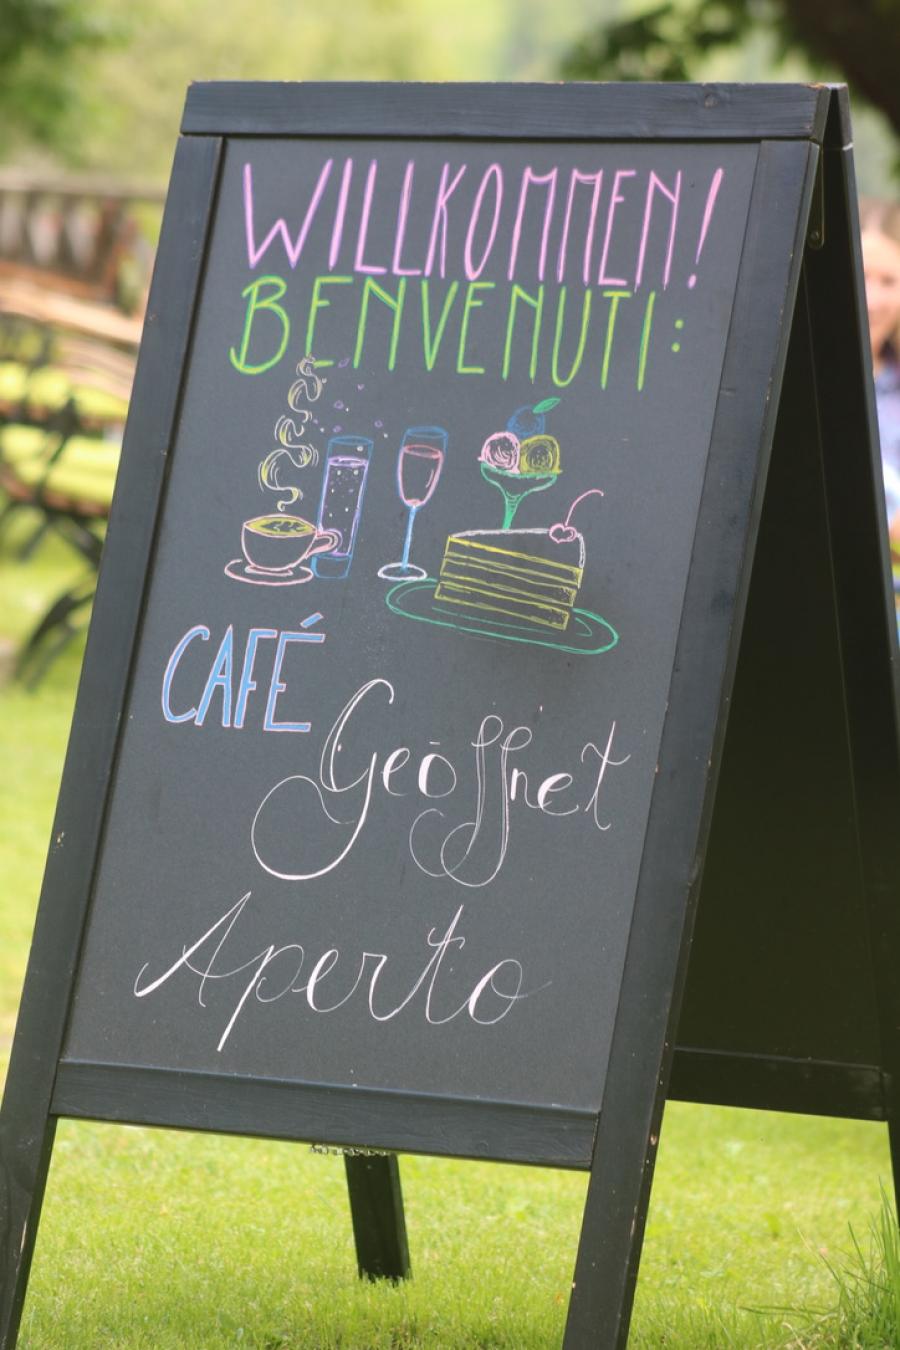 WILLKOMMEN!
BENVENUTI:
CAFÉ
Geöffnet
Aperto